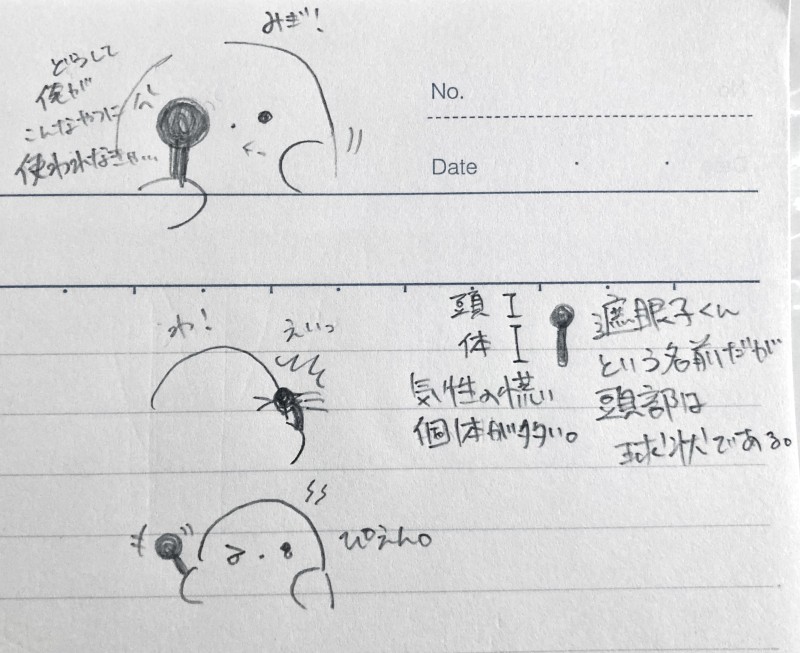 みぎ!
どうして
俺が
こんなやつに
使われなきゃ…
No.
Date
わ!
えいっ
頭
体
気性の慌い
個体が多い。
遮眼子くん
という名前だが
頭部は
球状である。
ぴえん。